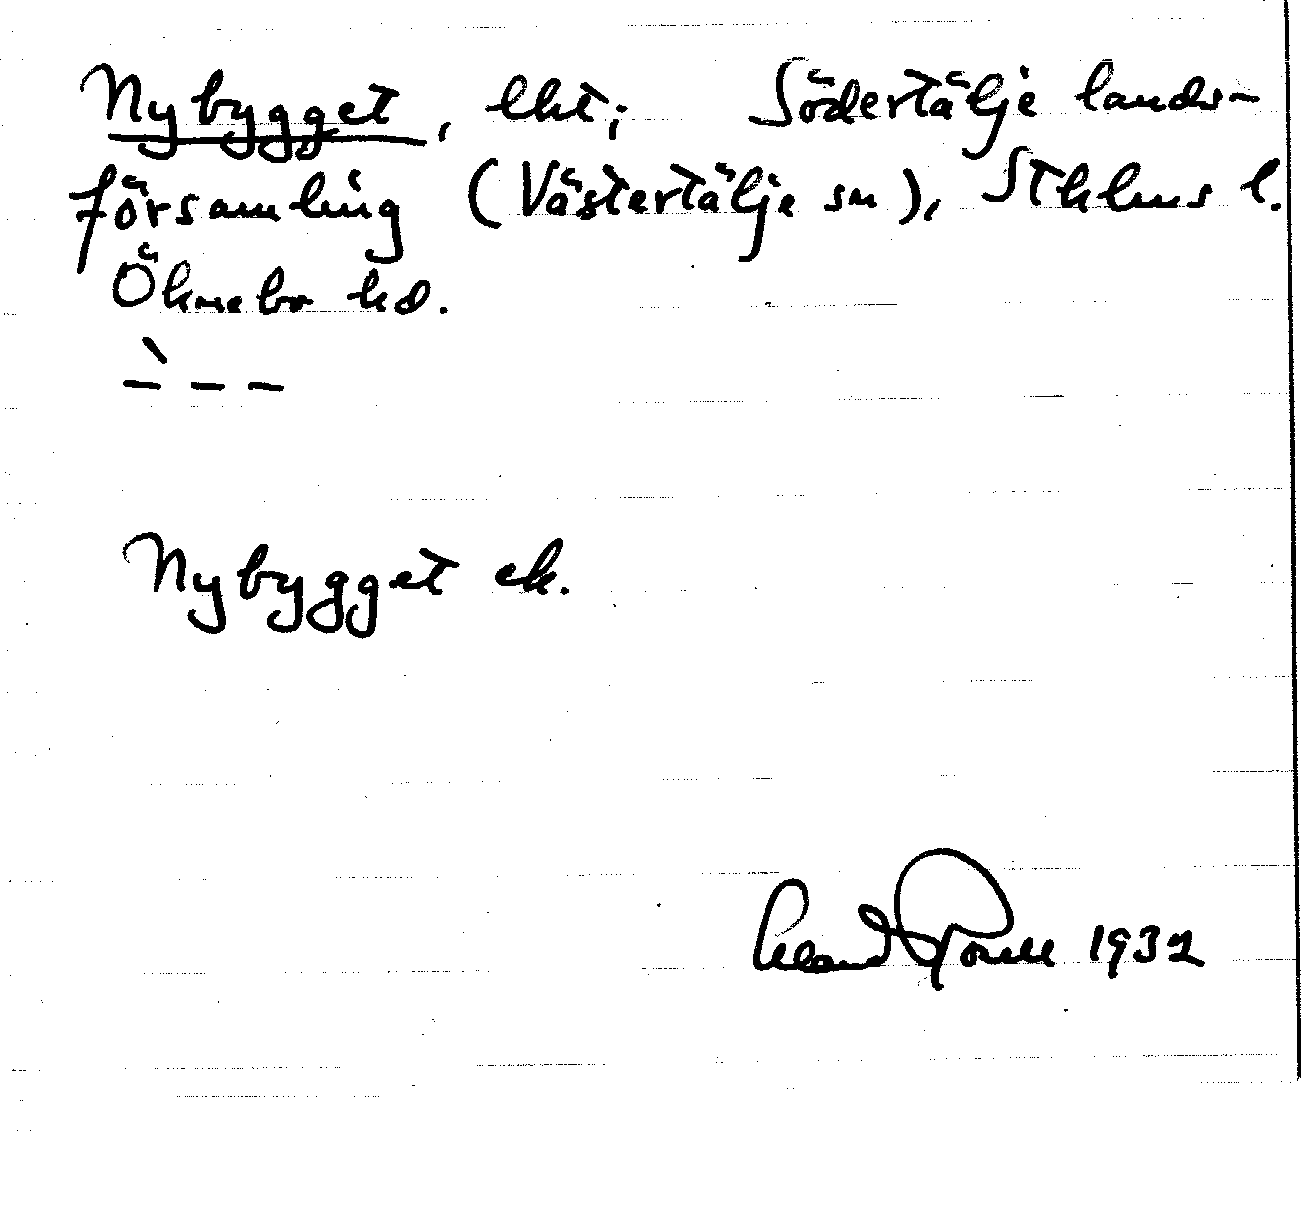 Nybygget, lht; Södertälje lands-
församling (Västertälje sn), Sthlms l.
Öknebo hd.
Nybygget ek.
1932